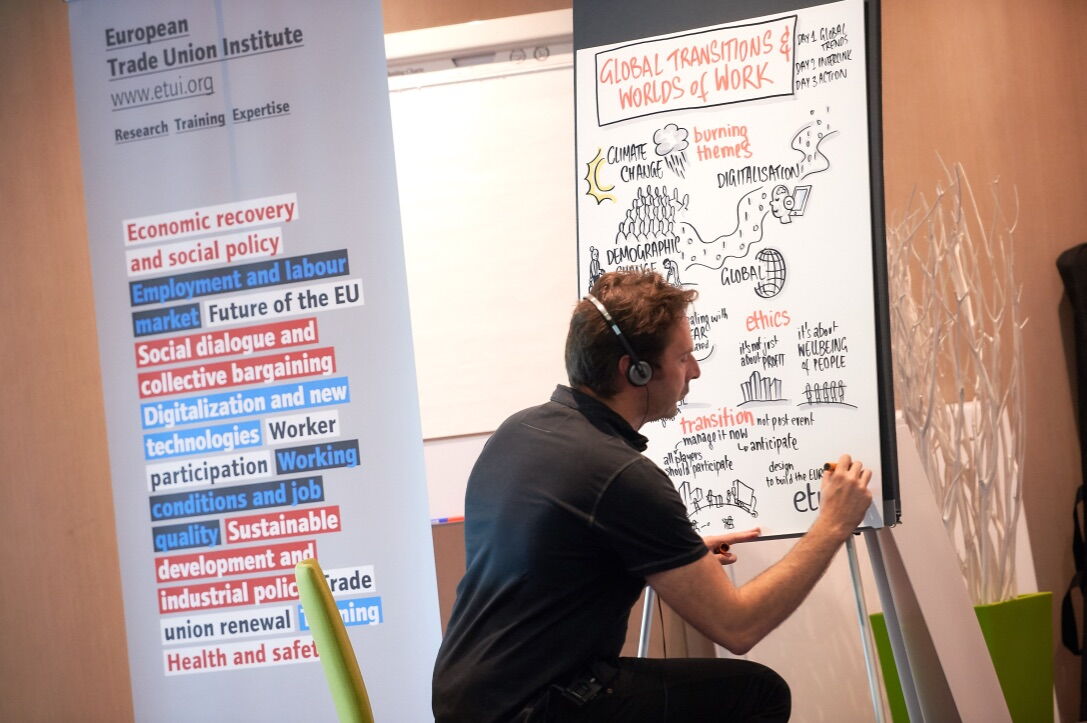 European
Trade Union Institute
www.etui.org
Research Training Expertise
Economic recovery
and social policy
Employment and labour
market Future of the EU
Social dialogue and
collective bargaining
Digitalization and new
technologies Worker
participation Working
conditions and job
quality Sustainable
development and
industrial polic
rade
union renewal
ning
Health and safet
GLOBAL TRANSITIONS &
WORLDS of WORK
DAY 1 GLOBAL
TRENDS
DAY 2 INTERLINK
DAY 3 ACTION
CLIMATE
CHANGE
burning
themes
DIGITALISATION
DEMOGRAPHIC
CHANGE
GLOBAL
ealing with
EAR
ethics
it's not just
about PROFIT
it's about
WELLBEING
of PEOPLE
transition not post event
manage it now
anticipate
all players
should participate
design
to build the EUR
etu